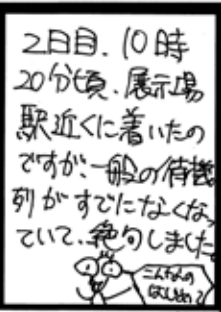 2日目、10時
20分頃、展示場
駅近くに着いたの
ですが、一般の待機
列がすでになくなっ
ていて、絶句しました。
こんなの
はじめて?